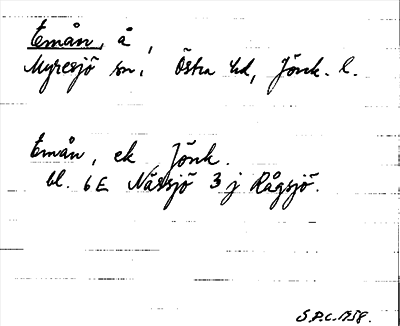 Emån, å,
Myresjö sn, Östra hd, Jönk. l.
Emån, ek Jönk.
bl. 6E Nässjö 3 j Rågsjö.
S.P.C. 1958.